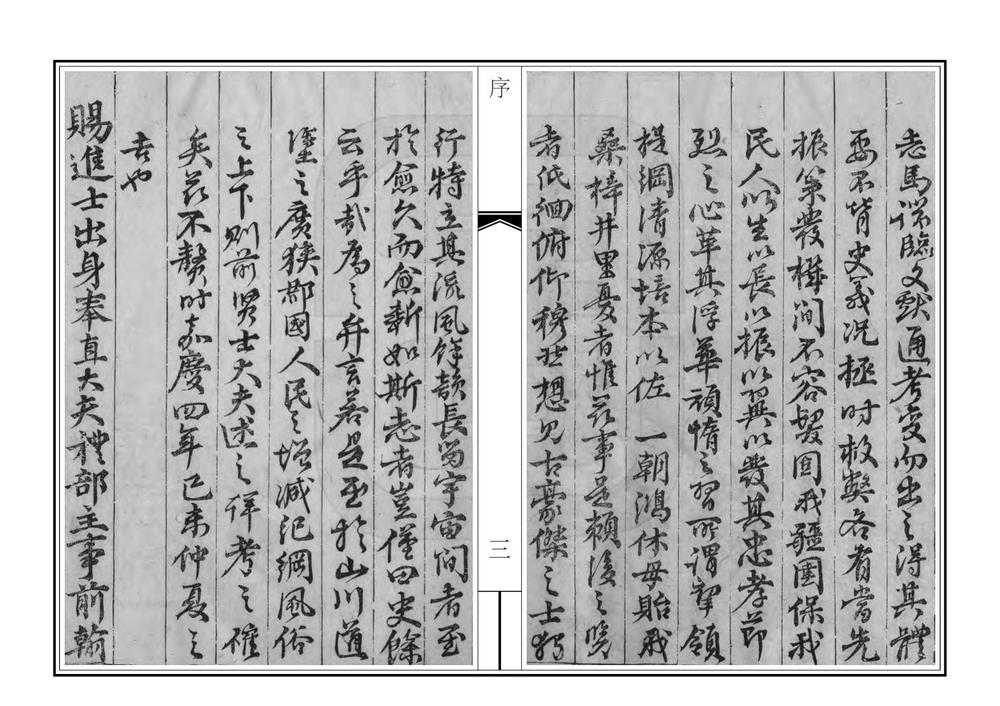 志馬端臨文獻通考變而出之得其體
要不背史義況拯時救弊各有當先
振第發樽間不容髮固我疆圉保我
民人以生以長以振以翼以發其忠孝節
烈之心革其浮華頑惰之習所謂挈領
提綱清源培本以佐 一朝鴻休毋貽我
桑梓井里憂者惟茲事是賴後之覽
者低徊俯仰穆然想見古豪傑之士獨
序
三
行特立其流風餘韻長留宇宙間者至
於愈久而愈新如斯志者豈僅曰史餘
云乎哉為之弁言若是至於山川道
塗之廣狹郡國人民之增減紀綱風俗
之上下則前賢士大夫述之詳考之確
矣茲不贅時嘉慶四年己未仲夏之
吉也
賜進士出身奉直大夫禮部主事前翰